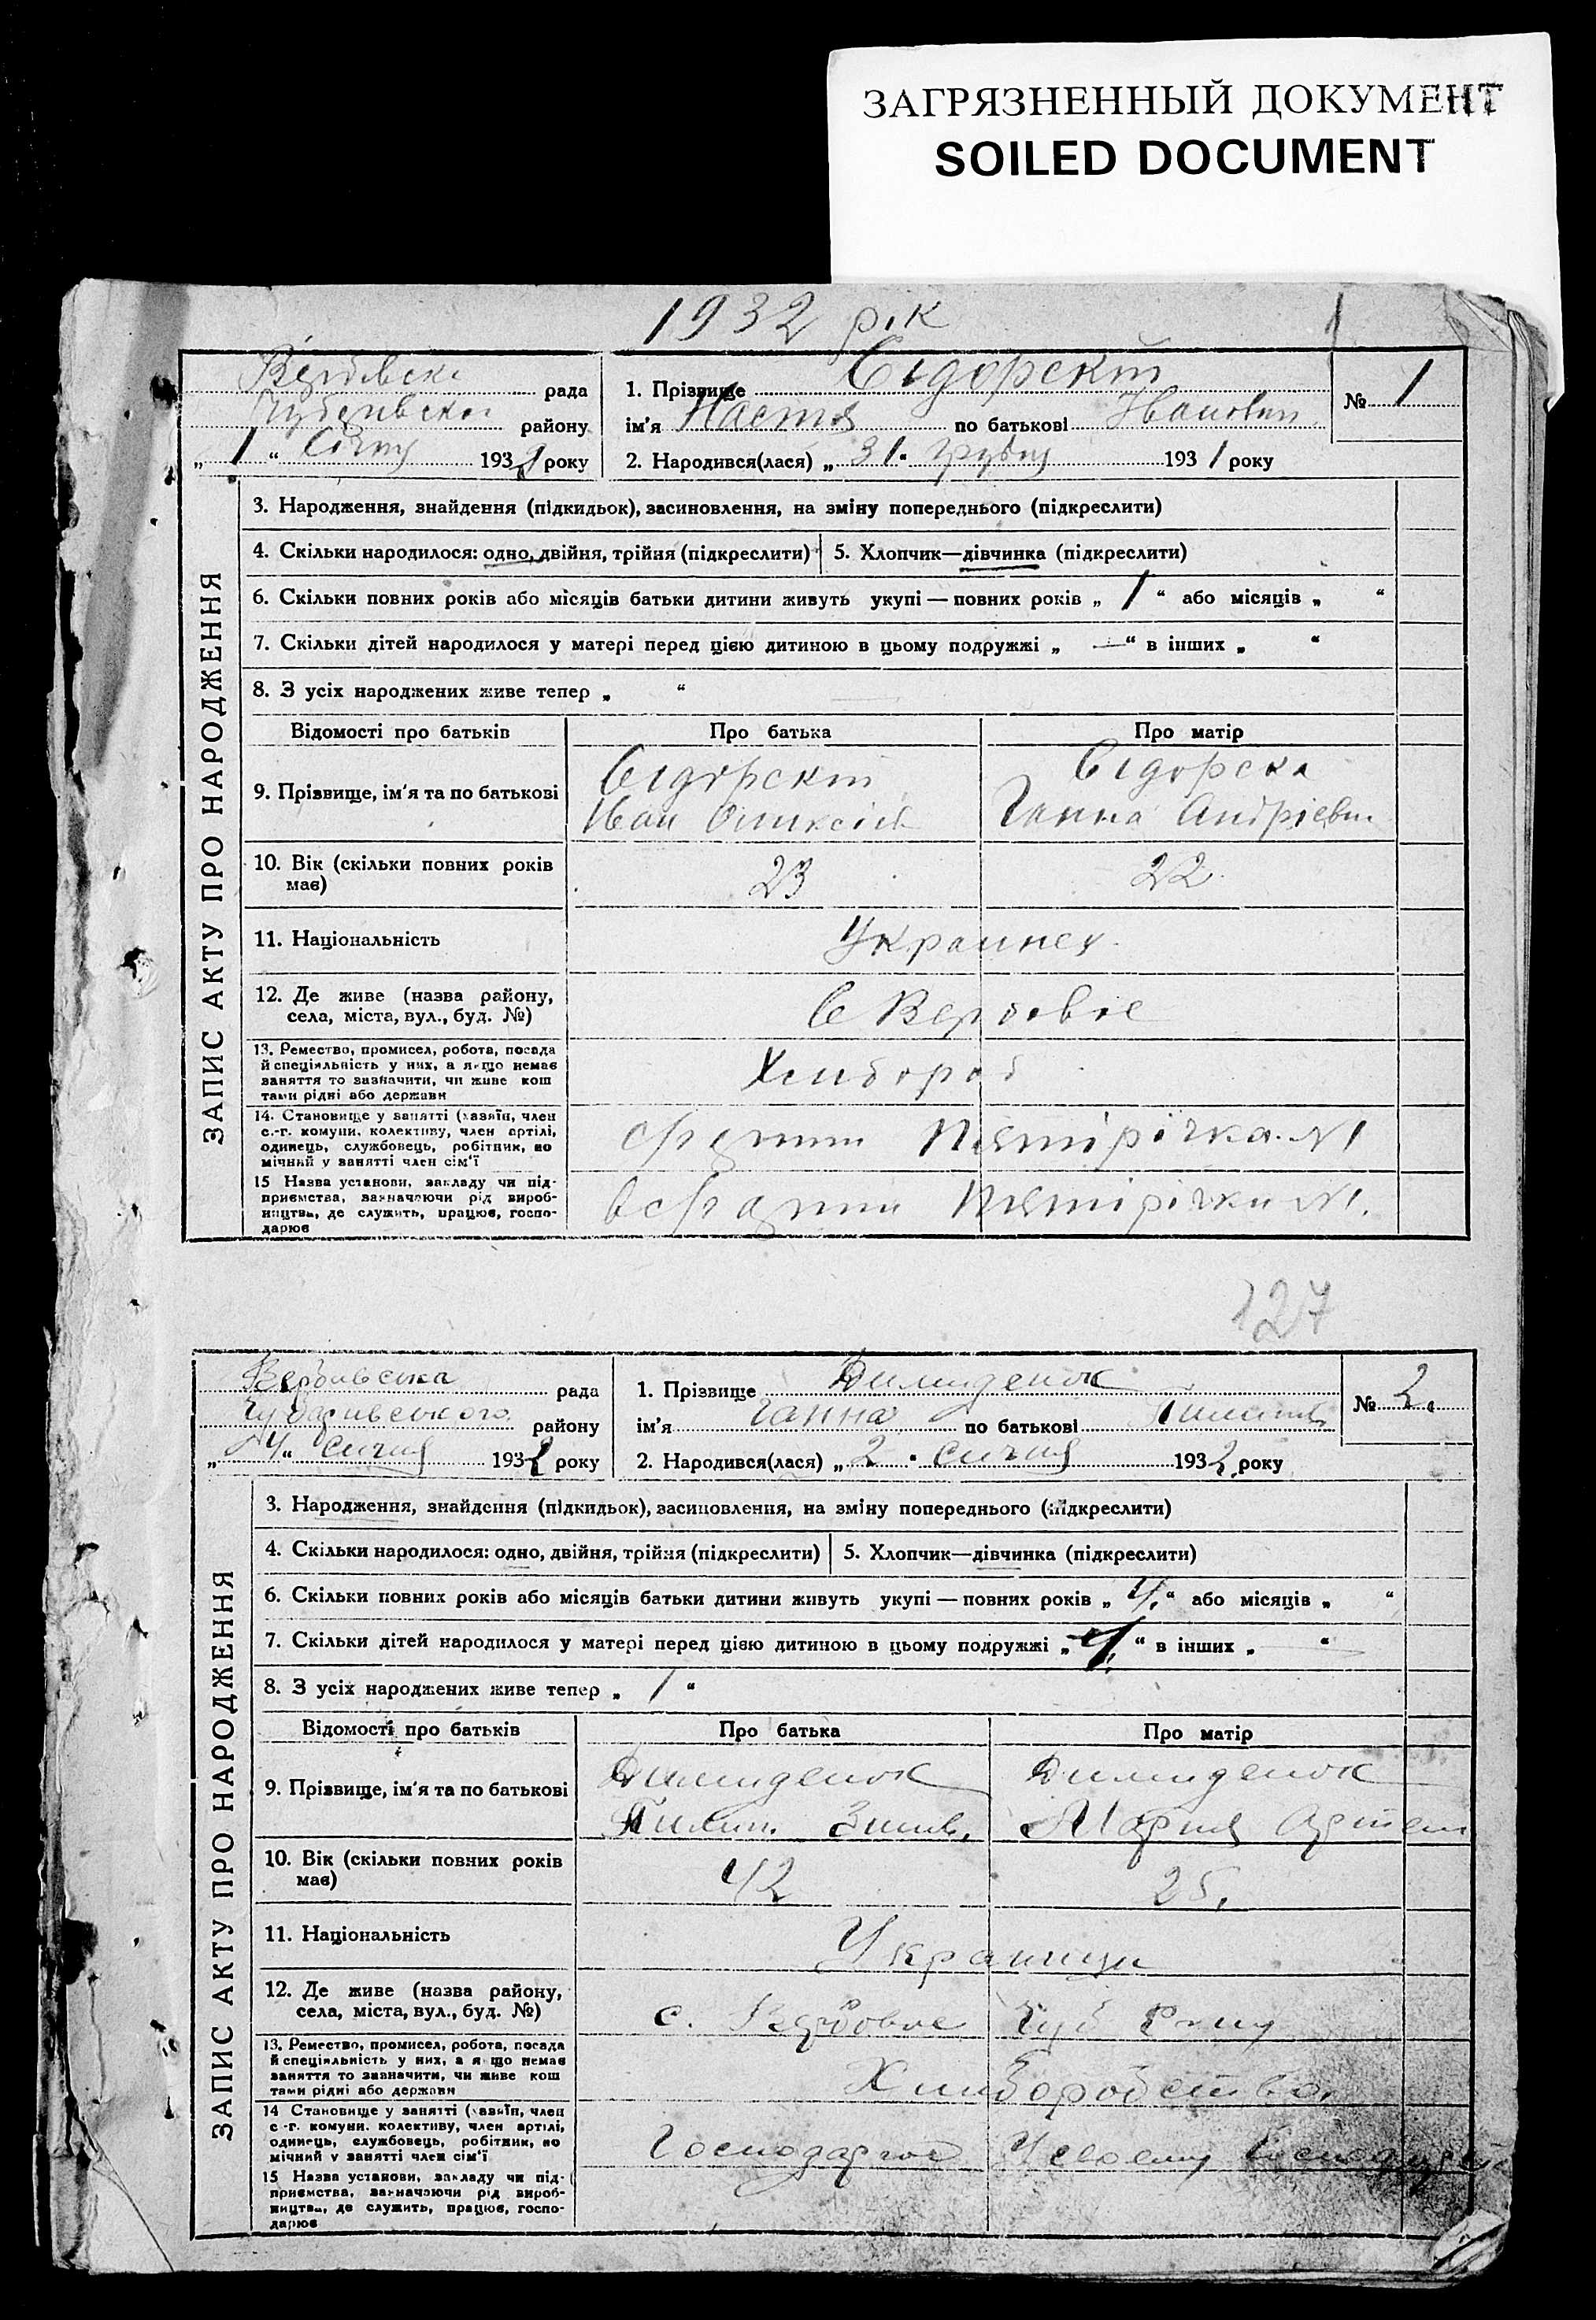 ЗАГРЯЗНЕННЫЙ ДОКУМЕНТ
SOILED DOCUMENT
1932 рік
1
рада
району
„ 1 “ Січня 1932 року
1. Прізвище Сідорскій
ім'я Настя по батькові Іванов
2. Народився(лася) „ 31 “ Грудня 1931 року
№ 1
ЗАПИС АКТУ ПРО НАРОДЖЕННЯ
3. Народження, знайдення (підкидьок), засиновлення, на зміну попереднього (підкреслити)
4. Скільки народилося: одно, двійня, трійня (підкреслити) 5. Хлопчик—дівчинка (підкреслити)
6. Скільки повних років або місяців батьки дитини живуть укупі — повних років „ 1 “ або місяців „ “
7. Скільки дітей народилося у матері перед цією дитиною в цьому подружжі „ — “ в інших „ “
8. З усіх народжених живе тепер „ “
Відомості про батьків Про батька Про матір
9. Прізвище, ім'я та по батькові
Сідорскій
Иван
Сідорска
Ганна Андріевн
10. Вік (скільки повних років має) 23 22
11. Національність Украинец
12. Де живе (назва району, села, міста, вул., буд. №) С Вербовое
13. Ремество, промисел, робота, посада й спеціяльність у них, а якщо немає заняття то зазначити, чи живе коштами рідні або держави
Хлибороб
14. Становище у занятті (хазяїн, член с.-г. комуни, колективу, член артілі, одинець, службовець, робітник, помічний у занятті член сім'ї
Пятірічка №1
15 Назва установи, закладу чи підприємства, зазначаючи рід виробництва, де служить, працює, господарює
Пятірічки №1.
127
Вербивська рада
Чубаривського району
„ 4 “ сичня 1932 року
1. Прізвище
ім'я Ганна по батькові
2. Народився(лася) „ 2 “ сичня 1932 року
№ 2.
ЗАПИС АКТУ ПРО НАРОДЖЕННЯ
3. Народження, знайдення (підкидьок), засиновлення, на зміну попереднього (підкреслити)
4. Скільки народилося: одно, двійня, трійня (підкреслити) 5. Хлопчик—дівчинка (підкреслити)
6. Скільки повних років або місяців батьки дитини живуть укупі — повних років „ 4. “ або місяців „ “
7. Скільки дітей народилося у матері перед цією дитиною в цьому подружжі „ “ в інших „ “
8. З усіх народжених живе тепер „ 1 “
Відомості про батьків Про батька Про матір
9. Прізвище, ім'я та по батькові
Пилип
Мария Артем
10. Вік (скільки повних років має) 42 25.
11. Національність Украинци
12. Де живе (назва району, села, міста, вул., буд. №) с. Вербовое Чуб
13. Ремество, промисел, робота, посада й спеціяльність у них, а якщо немає заняття то зазначити, чи живе коштами рідні або держави
Хлиборобство.
14 Становище у занятті (хазяїн, член с.-г. комуни, колективу, член артілі, одинець, службовець, робітник, помічний у занятті член сім'ї
Господарює У своему
15 Назва установи, закладу чи підприємства, зазначаючи рід виробництва, де служить, працює, господарює